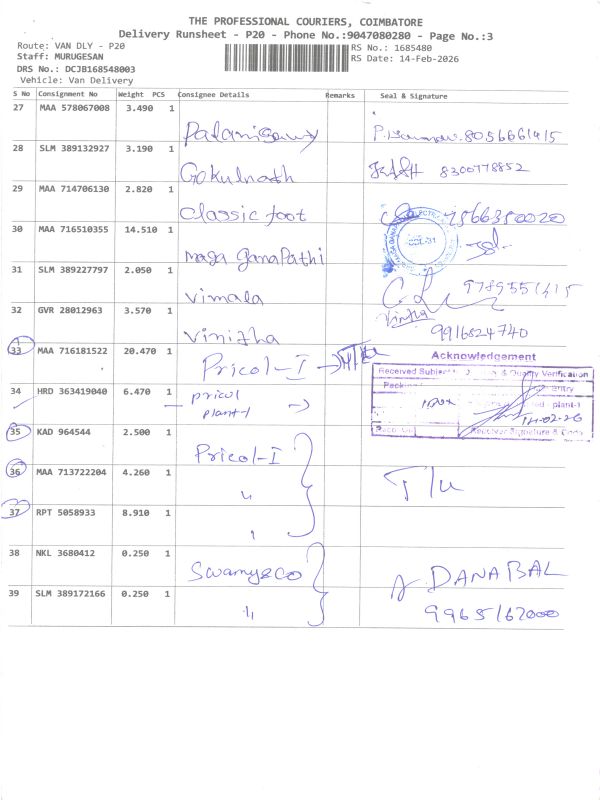 THE PROFESSIONAL COURIERS, COIMBATORE
Delivery Runsheet - P20 - Phone No.:9047080280 - Page No.:3
Route: VAN DLY - P20
Staff: MURUGESAN
DRS No.: DCJB168548003
Vehicle: Van Delivery
RS No.: 1685480
RS Date: 14-Feb-2026
S No Consignment No Weight PCS Consignee Details Remarks Seal & Signature
27 MAA 578067008 3.490 1 Palanisamy 8056661415
28 SLM 389132927 3.190 1 Gokulnath 8300778852
29 MAA 714706130 2.820 1 Classic foot 7566350020
30 MAA 716510355 14.510 1 maga Ganapathi
31 SLM 389227797 2.050 1 vimala 9789551415
32 GVR 28012963 3.570 1 Vinitha Vinitha 9916824740
33 MAA 716181522 20.470 1 Pricol-I
Acknowledgement
34 HRD 363419040 6.470 1 pricol plant-1
14-02-26
35 KAD 964544 2.500 1 Pricol-I
36 MAA 713722204 4.260 1 "
37 RPT 5058933 8.910 1
38 NKL 3680412 0.250 1 Swamy&co DANABAL
39 SLM 389172166 0.250 1 " 9965162000